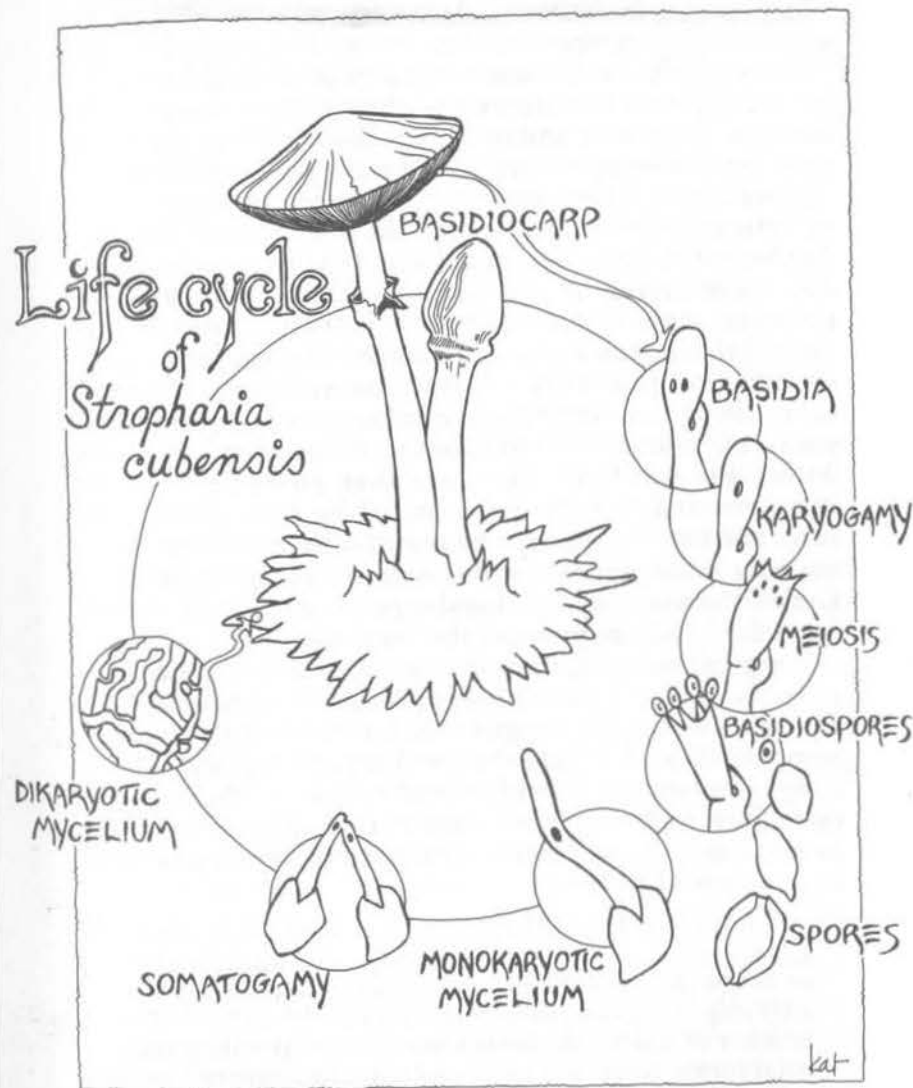 Life cycle
of
Stropharia
cubensis
BASIDIOCARP
BASIDIA
KARYOGAMY
MEIOSIS
BASIDIOSPORES
SPORES
MONOKARYOTIC
MYCELIUM
SOMATOGAMY
DIKARYOTIC
MYCELIUM
kat